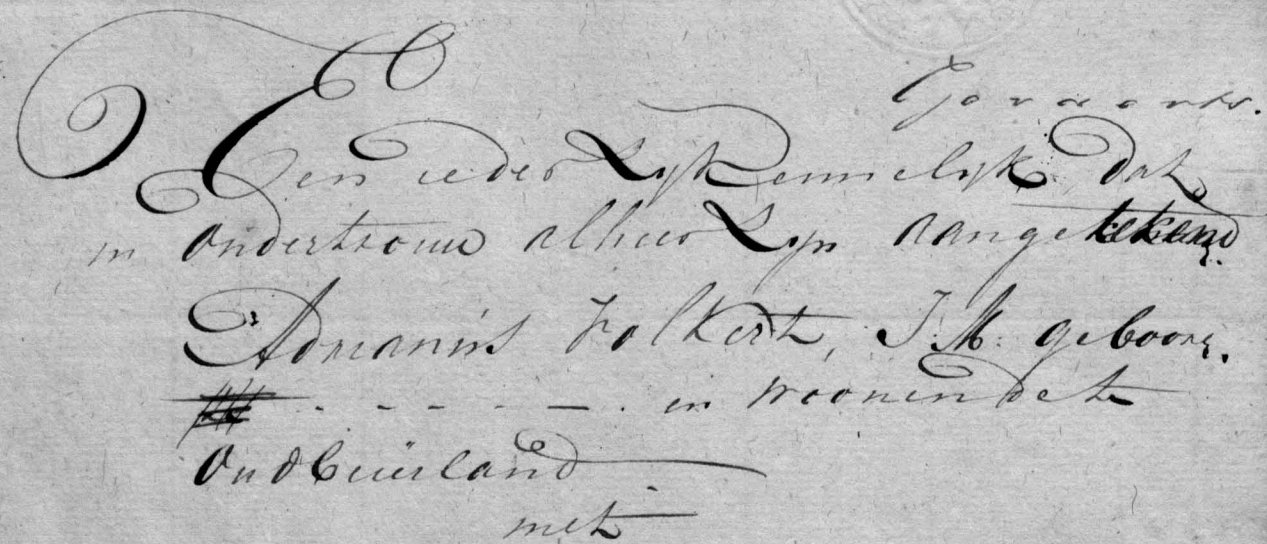 Govaarts.
Een ieder zyk kennelyk dat
in ondertrouw alhier zyn aangetekend
Adrianis Folkert, J. M: geboore.
- - - - - - en woonende te
Oudbeüerland
met